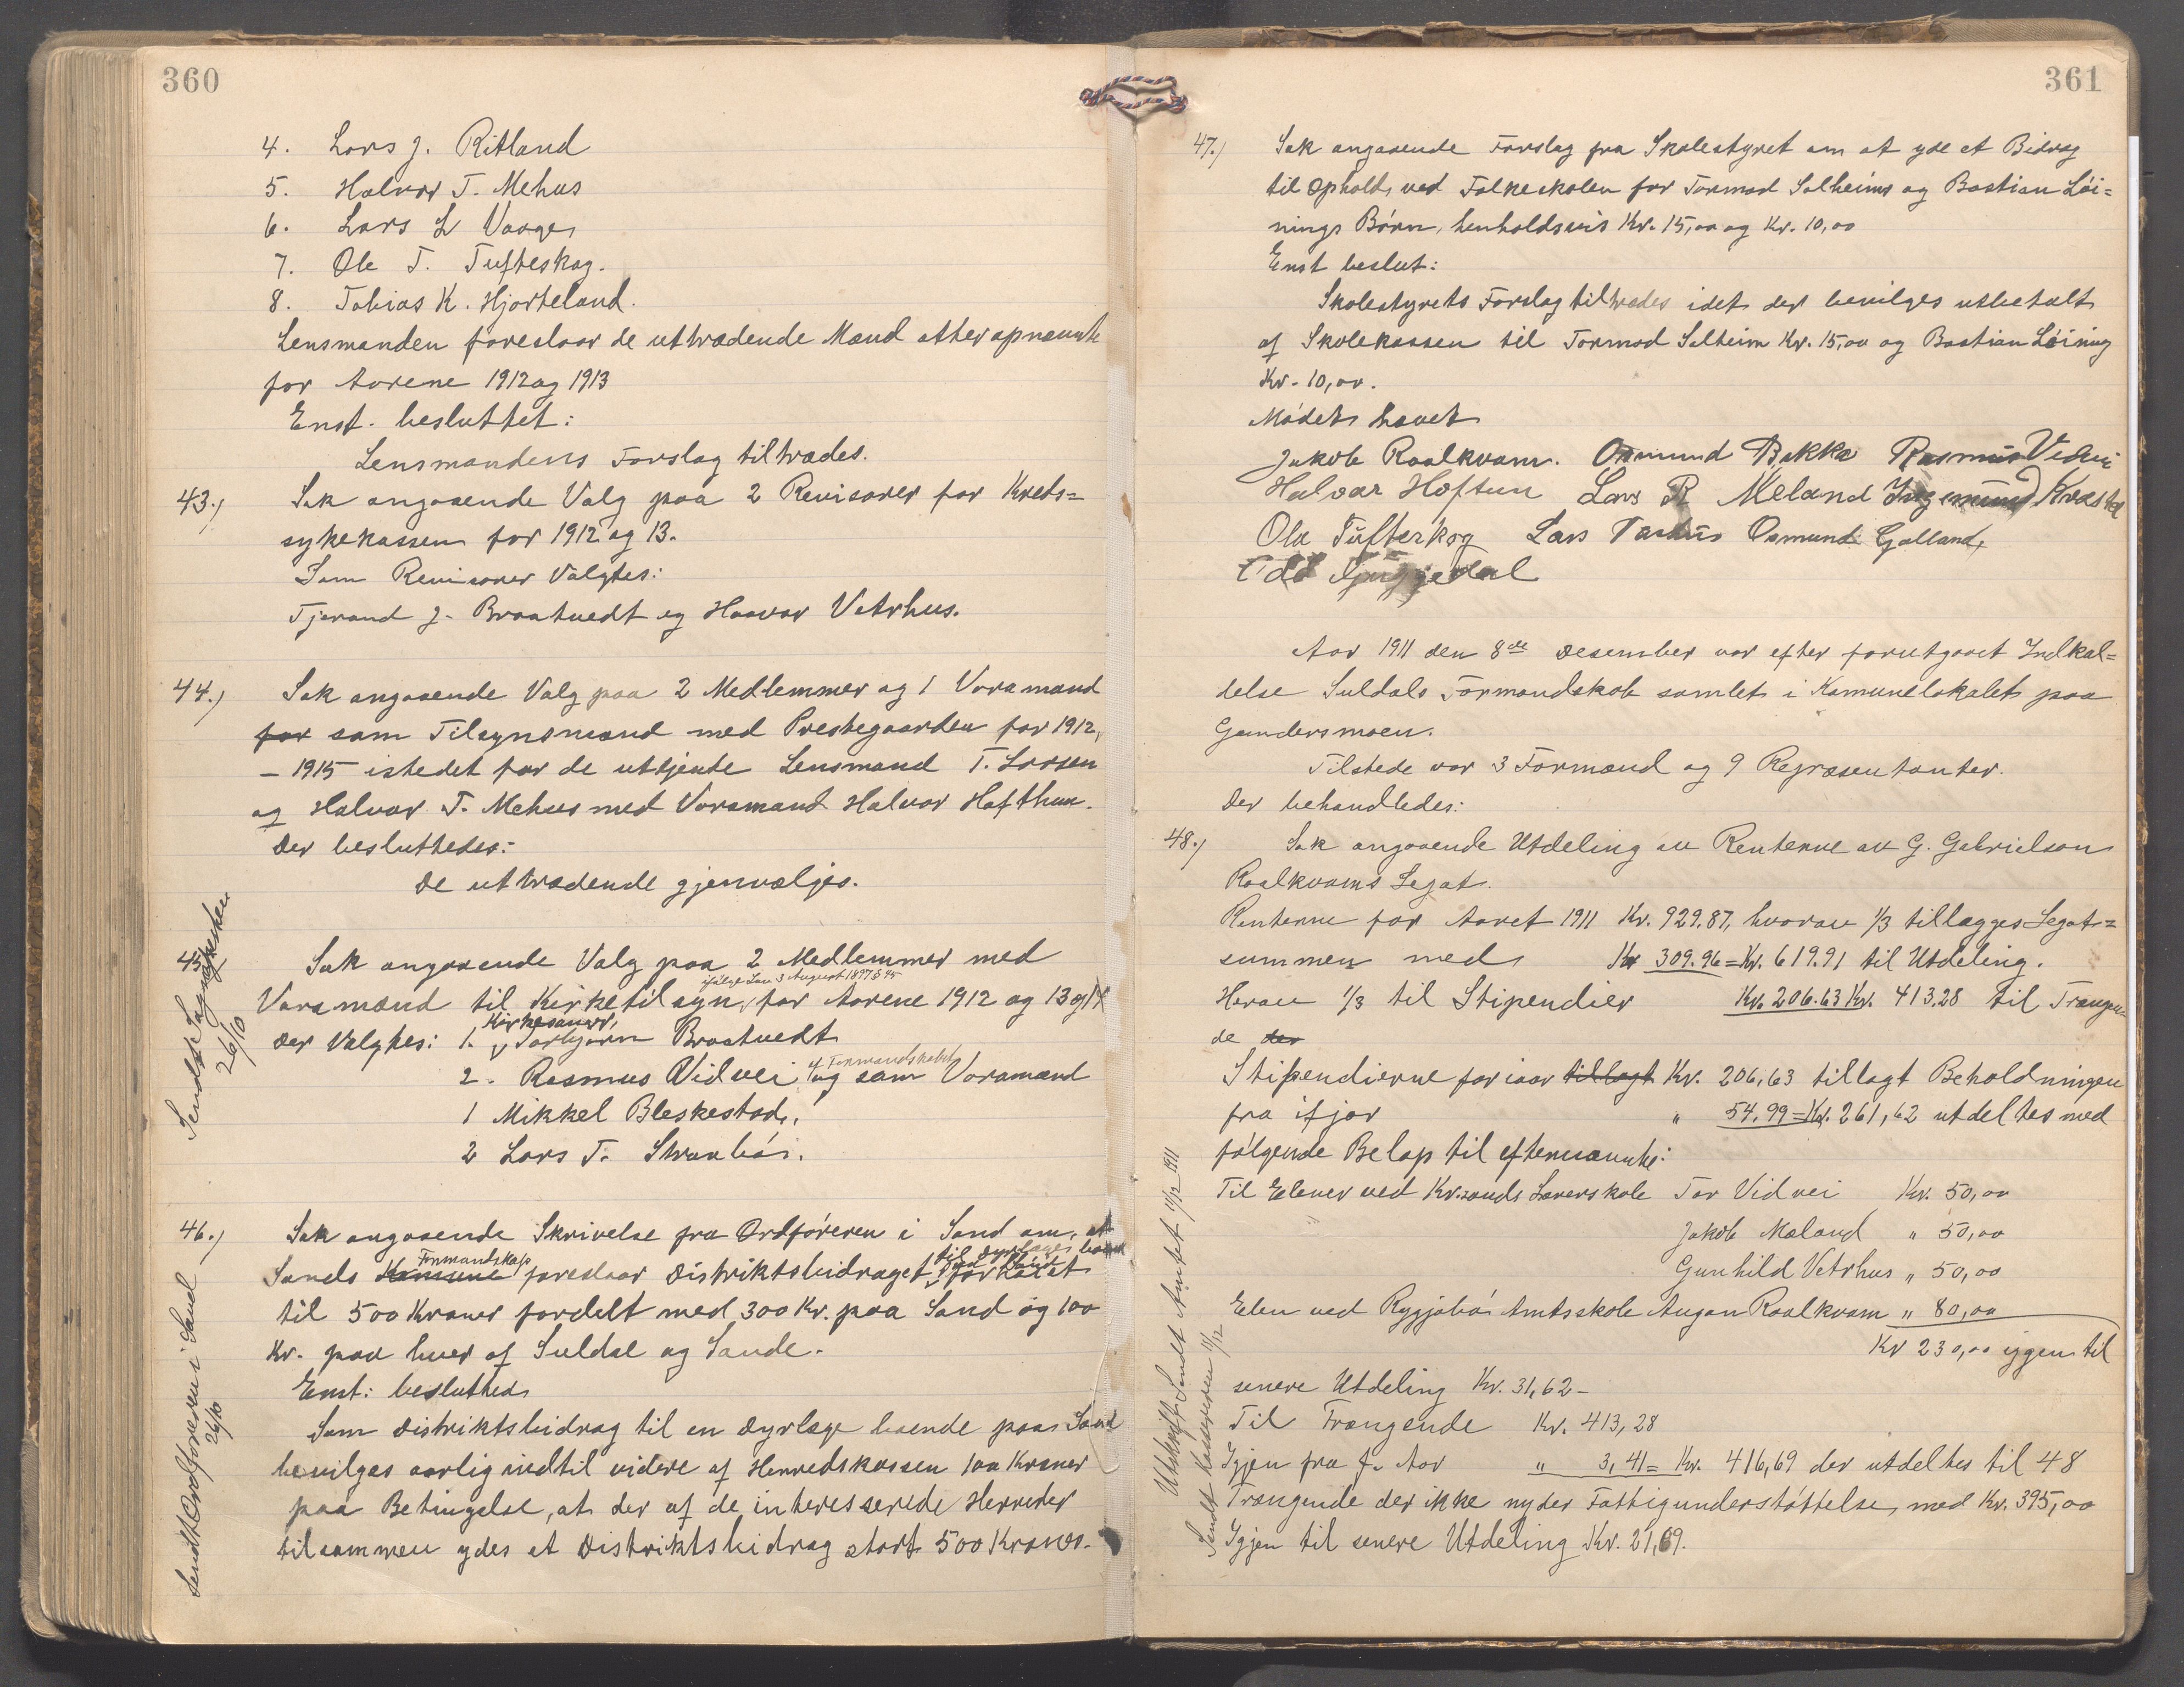 360
4. Lars J. Ritland
5. Halvor T. Mehus
6. Lars L Vaage
7. Ole T. Tufteskog.
8. Tobias K. Hjorteland.
Lensmanden foreslaar de uttrædende Mænd atter opnævnte
for Aarene 1912 og 1913
Enst. besluttet:
Lensmandens Forslag tiltrædes.
43.) Sak angaaende Valg paa 2 Revisorer for Kreds=
sykekassen for 1912 og 13.
Som Revisorer valgtes:
Tjerand J. Braatvedt og Haavar Vetrhus.
44.) Sak angaaende Valg paa 2 Medlemmer og 1 Varamand
for som Tilsynsmænd med Prestegaarden for 1912
– 1915 istedet for de uttjente Lensmand T. Larsen
og Halvor T. Mehus med Varamand Halvor Hofthun.
Der besluttedes:
De uttrædende gjenvælges.
45.) Sak angaaende Valg paa 2 Medlemmer med
ifølge Lov 3 August 1897 § 45
Varamænd til Kirketilsyn, for Aarene 1912 og 13 og 14
Kirkesanger,
Der valgtes: 1. Torbjørn Braatvedt
af Formandskabet
2. Rasmus Vidvei og som Varamænd
1 Mikkel Bleskestad,
2 Lars T. Straabø.
Sendt Sognepresten
26/10
46.) Sak angaaende Skrivelse fra Ordføreren i Sand om, at
Formandskap til Dyrlæges
Sands Komune foreslaar Distriktsbidraget, forhøiet
til 500 Kroner fordelt med 300 Kr. paa Sand og 100
Kr. paa hver af Suldal og Sande.
Enst: besluttes
Som Distriktsbidrag til en Dyrlæge boende paa Sand
bevilges aarlig indtil videre af Herredskassen 100 Kroner
paa Betingelse, at der af de interesserede Herreder
tilsammen ydes et Distriktsbidrag stort 500 Kroner.
Sendt Ordføreren i Sand
26/10
361
47.) Sak angaaende Forslag fra Skolestyret om at yde et Bidrag
til Ophold ved Folkeskolen for Tormod Solheims og Bastian Løi=
nings Børn, henholdsvis Kr. 15,00 og Kr. 10,00
Enst beslut:
Skolestyrets Forslag tiltrædes idet der bevilges utbetalt
af Skolekassen til Tormod Solheim Kr. 15,00 og Bastian Løining
Kr. 10,00.
Mødet hævet
Jakob Roalkvam. Osmund Bakka Rasmus Vidvei
Halvar Hoftun Lars R Meland Ingemund
Ola Tufteskog Lars Osmund Galland,
Odd
Aar 1911 den 8de Desember var efter forutgaaet Indkal=
delse Suldals Formandskab samlet i Komunelokalet paa
Gundersmoen.
Tilstede var 3 Formænd og 9 Repræsentanter.
Der behandledes:
48.) Sak angaaende Utdeling av Renterne av G. Gabrielsen
Roalkvams Legat.
Renterne for Aaret 1911 Kr. 929.87, hvorav 1/3 tillægges Legat=
summen med Kr 309.96 = Kr. 619.91 til Utdeling.
Herav 1/3 til Stipendier Kr. 206.63 Kr. 413,28 til Trængen=
de der
Stipendierne for iaar tillagt Kr. 206,63 tillagt Beholdningen
fra ifjor " 54.99 = Kr. 261,62 utdeltes med
følgende Beløp til efternævnte:
Til Elever ved Kr.sands Lærerskole Tor Vidvei Kr. 50,00
" Jakob Mæland " 50,00
Gunhild Vetrhus " 50,00
Elev ved Rygjabø Amtsskole Augon Roalkvam " 80,00
Kr 230,00 igjen til
senere Utdeling Kr. 31,62 –
Til Trængende Kr. 413,28
Igjen fra f. Aar " 3,41 = Kr. 416,69 der utdeltes til 48
Trængende der ikke nyder Fattigunderstøttelse, med Kr. 395,00
Igjen til senere Utdeling Kr. 21,69.
Utskrift Sendt Amtet 11/12 1911
Sendt Kassereren 11/12